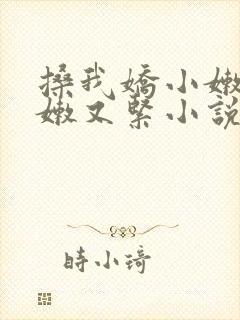 搡我嬌小嫩
嫩又緊小說
時小琦